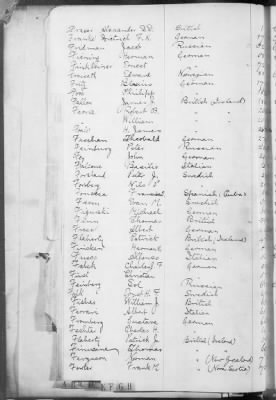 Fraser Alexander D.D. British
Franke Dietrich F.K. German
Fredman Jacob Russian
Fleming Herman German
Finkbeiner Ernest "
Forseth Edward Norwegian
Fritz Blasius German
Foos Philipp "
Fallon James J. British (Ireland)
Feore Robert B. " "
" William " "
Fair H. James " "
Freeham Theobald German
Feinburg Peter Russian
Fey John German
Falcone Basilio Italian
Forslund Peter J. Swedish
Forsberg Nils P. "
Fonseka Francisco Spanish (Cuba)
Fromm Evan M. Swedish
Figurski Michael German
Finn Thomas British
Freer Albert German
Flaherty Patrick British (Ireland)
Fincken Hermann German
Fusco Alfonso Italian
Fabich Charles F. German
Find Christian "
Feinberg Sol Russian
Falk Ernst H.F. Swedish
Forbes William J. British
Ferrara Albert P. Italian
Fromberg Gustave German
Fechter Charles A. "
Flaherty Patrick J. British (Ireland)
Finnerman Thomas "
Ferguson Norman " (New Zealand)
Foster Frank M. " (Nova Scotia)
F G H